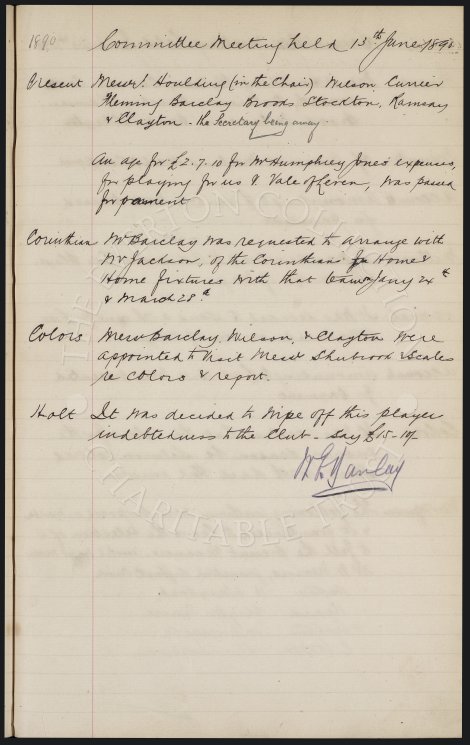 1890 Committee Meeting held 13th June 1890.
Present Messrs. Houlding (in the Chair) Wilson, Currier
Fleming Barclay Brooks Stockton, Ramsay
& Clayton - the Secretary being away
An age for £2-7-10 for Mr Humphrey Jones expenses,
for playing for us v. Vale of Leven, was passed
for payment
Corinthian Mr Barclay was requested to arrange with
Mr Jackson, of the Corinthians for Home &
Home fixtures with that team Jany 24th
& March 28th
Colors Messrs Barclay, Wilson, & Clayton were
appointed to visit Messrs Shubrood & Scales
re colors & report.
Holt It was decided to wipe off this player
indebtedness to the Club - say £15-
W E Barclay
THE EVERTON COLLECTION
CHARITABLE TRUST